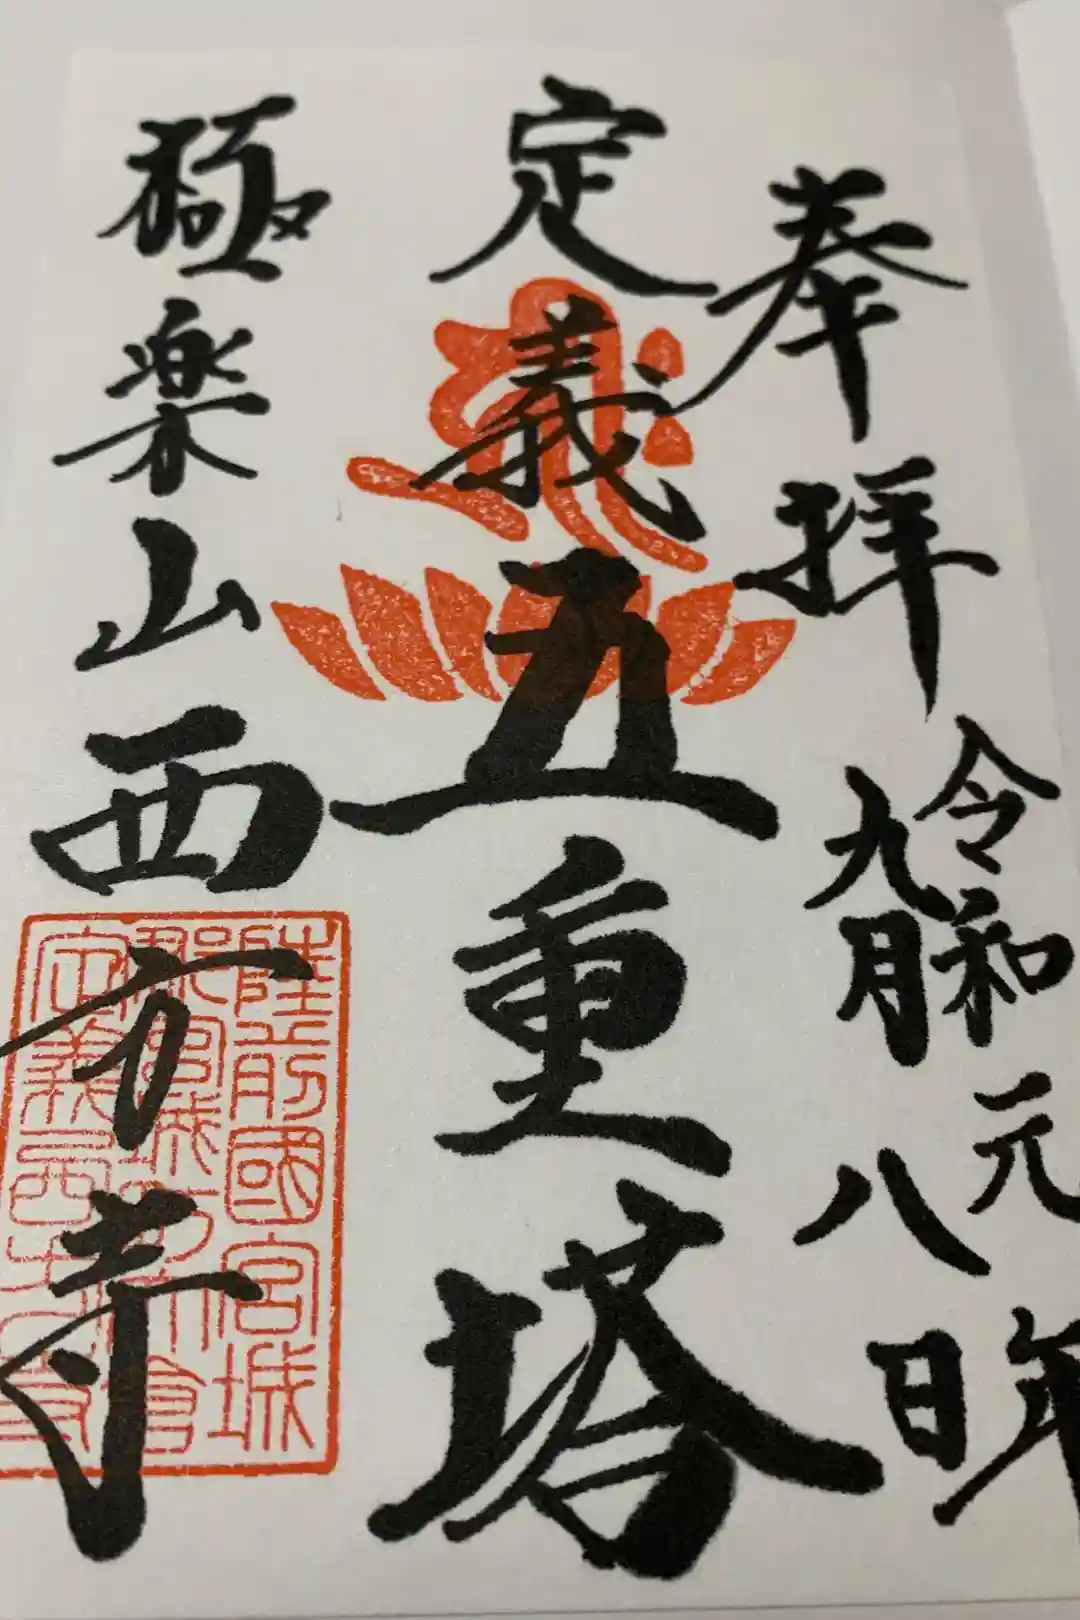 奉拝
令和元年
九月八日
定義
五重塔
極楽山西方寺
陸前國宮城
定義